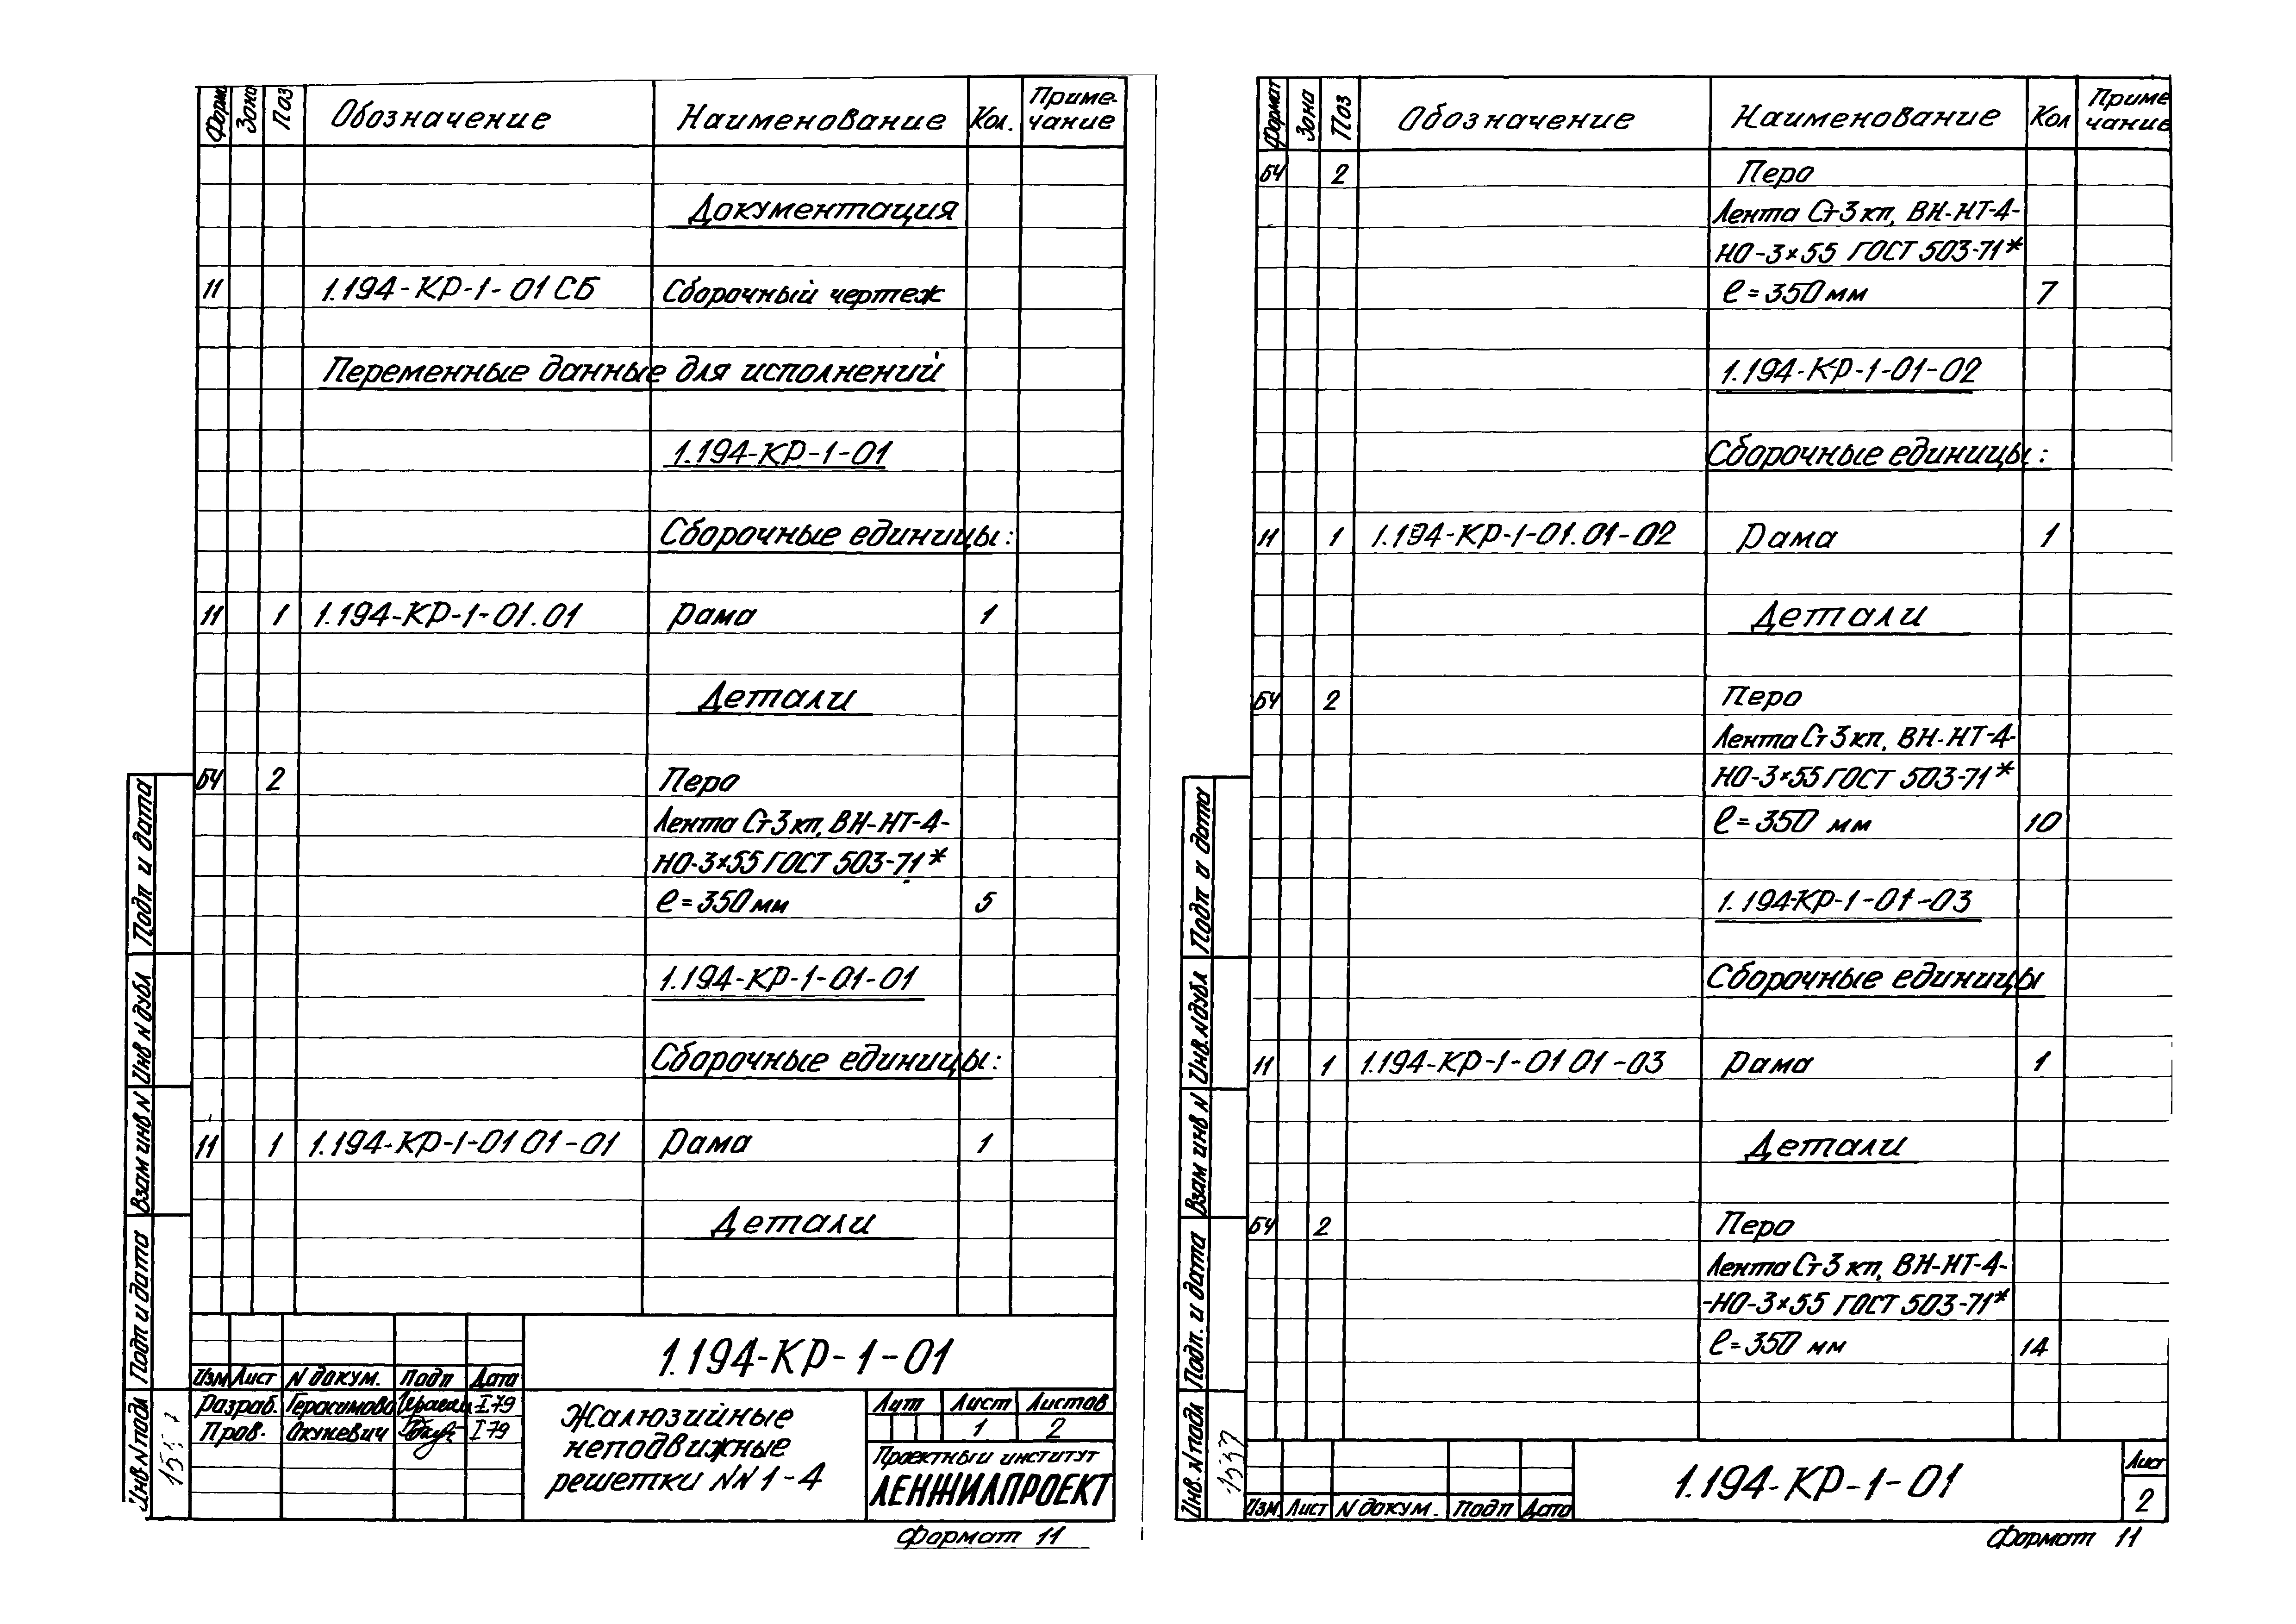 Форм Зона Поз Обозначение Наименование Кол. Приме-
чание
Документация
11 1.194-КР-1-01 СБ Сборочный чертеж
Переменные данные для исполнений
1.194-КР-1-01
Сборочные единицы:
11 1 1.194-КР-1-01.01 Рама 1
Детали
БЧ 2 Перо
Лента Ст3кп, ВН-НТ-4-
НО-3×55 ГОСТ 503-71*
ℓ=350мм 5
1.194-КР-1-01-01
Сборочные единицы:
11 1 1.194-КР-1-01 01-01 Рама 1
Детали
Подп и дата
Инв N дубл
Взам инв N
Подп и дата
Инв N подл
1.194-КР-1-01
Изм Лист N докум. Подп Дата
Разраб. Герасимова I.79
Пров. Окуневич I 79
Жалюзийные
неподвижные
решетки NN 1-4
Лит Лист Листов
1 2
Проектный институт
ЛЕНЖИЛПРОЕКТ
Формат 11
Формат Зона Поз Обозначение Наименование Кол Приме
чание
БЧ 2 Перо
Лента Ст3кп, ВН-НТ-4-
НО-3×55 ГОСТ 503-71*
ℓ=350мм 7
1.194-КР-1-01-02
Сборочные единицы:
11 1 1.194-КР-1-01.01-02 Рама 1
Детали
БЧ 2 Перо
Лента Ст3кп, ВН-НТ-4-
НО-3×55 ГОСТ 503-71*
ℓ=350 мм 10
1.194-КР-1-01-03
Сборочные единицы
11 1 1.194-КР-1-01 01-03 Рама 1
Детали
БЧ 2 Перо
Лента Ст3 кп, ВН-НТ-4-
-НО-3×55 ГОСТ 503-71*
ℓ=350 мм 14
Подп и дата
Инв. N дубл
Взам инв N
Подп. и дата
Инв. N подл
1537
Изм. Лист N докум. Подп Дата
1.194-КР-1-01
Лист
2
Формат 11